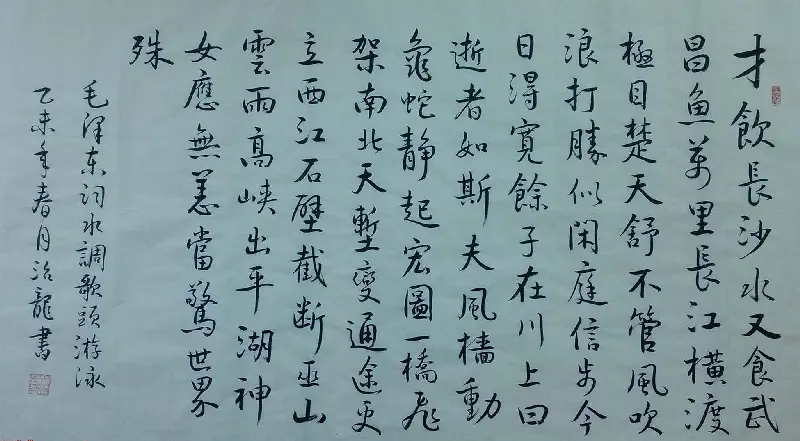 才飲長沙水又食武
昌魚萬里長江橫渡
極目楚天舒不管風吹
浪打勝似閑庭信步今
日得寬餘子在川上曰
逝者如斯夫風檣動
龜蛇靜起宏圖一橋飛
架南北天塹變通途更
立西江石壁截斷巫山
雲雨高峽出平湖神
女應無恙當驚世界
殊
毛泽东詞水調歌頭游泳
乙未年春月治龍書